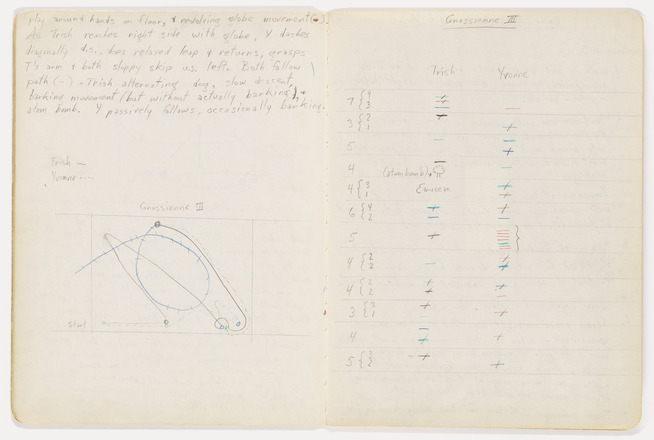 ply around hands on floor, & revolving globe movement
As Trish reaches right side with globe, Y dashes
diagonally d.s., does relaved leap & returns, grasps
T's arm & both sloppy skip u.s. left. Both follow
path (-) - Trish alternating dog, slow descent,
barking movement (but without actually barking), &
atom bomb. Y passively follows, occasionally barking.
Trish —
Yvonne ---
Gnossienne III
Start
Gnossienne III
Trish Yvonne
7 { 4
3
3 { 2
1
5
4
(atom bomb)
4 { 3
1
6 { 4
2
5
4 { 2
2
4 { 2
2
3 { 2
1
4
5 {